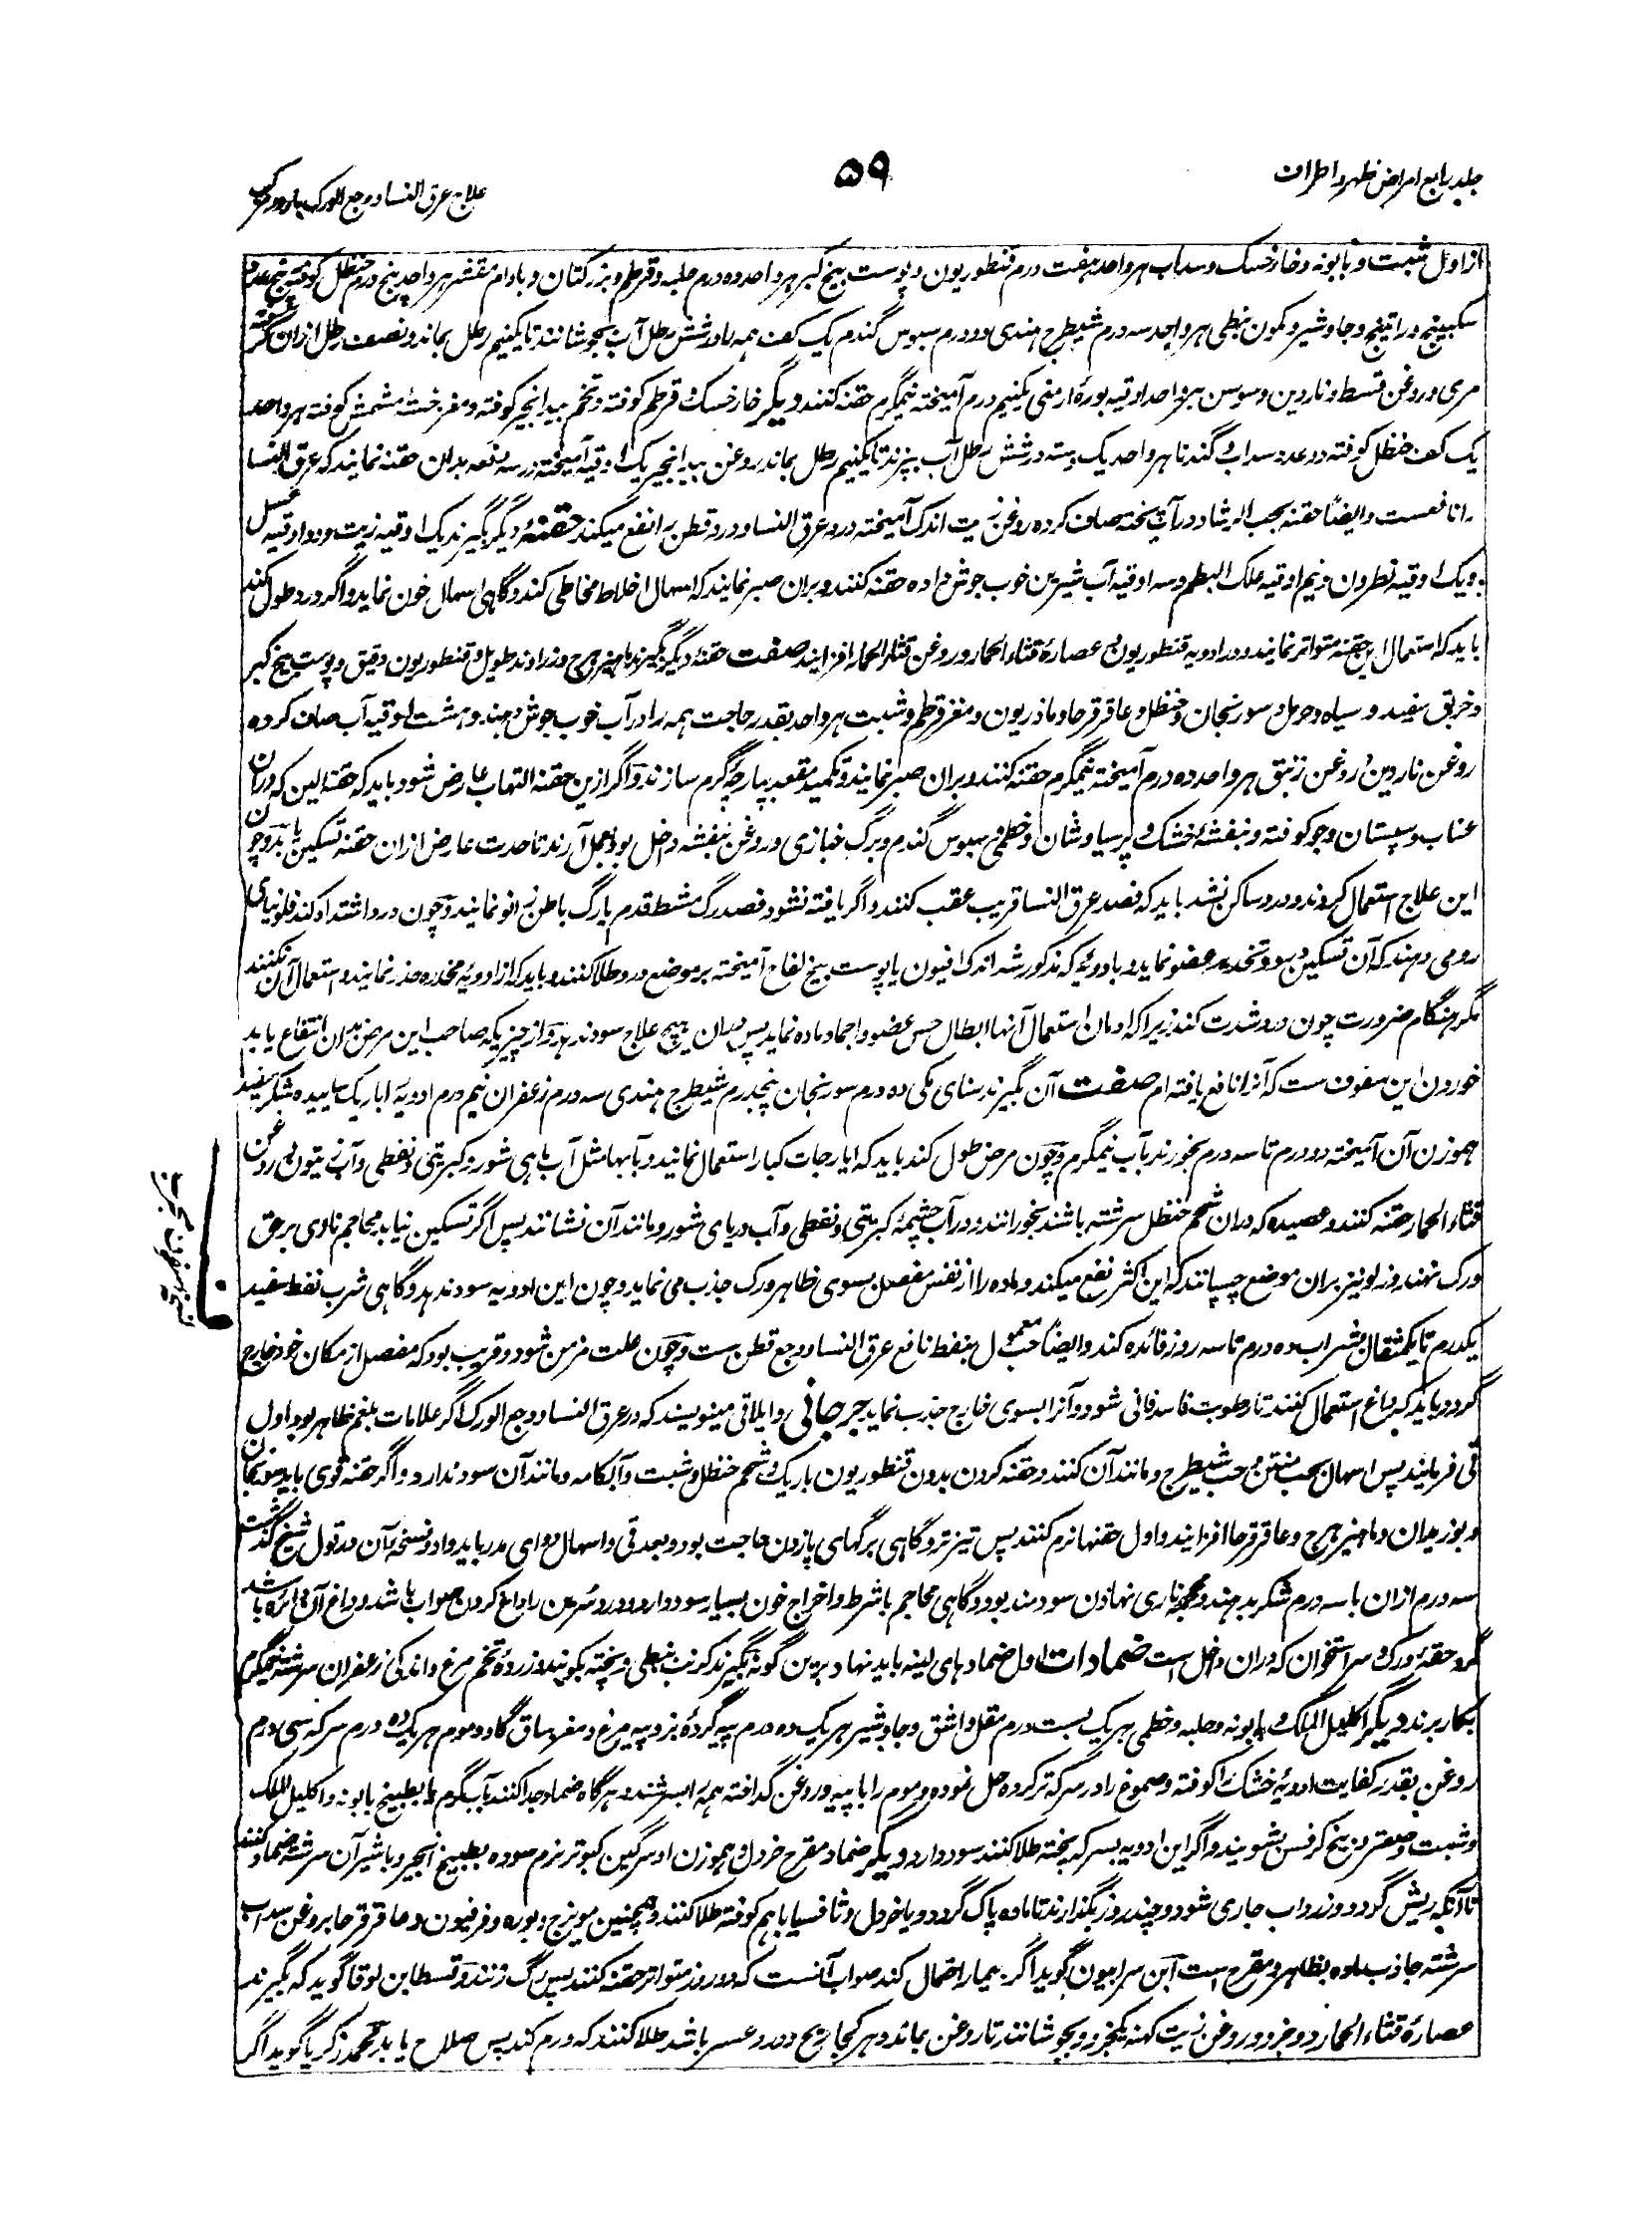 جلد رابع امراض ظهر و اطراف
۵۹
علاج عرق النسا و وجع الورک بارد مرکب
از اول شبت و بابونه و خارخسک و سداب هر واحد هفت درم قنطوریون و پوست بیخ کبر هر واحد ده درم حلبه و قرطم و بزر کتان و بادام مقشر هر واحد پنج درم حنظل کوفته پنج عدد
سکبینج و راتینج و جاوشیر و کمون نبطی هر واحد سه درم شیطرج هندی دو درم سبوس گندم یک کف همه را در شش رطل آب بجوشانند تا یکنیم رطل بماند و نصف رطل ازان گرفته
مری و روغن قسط و ناردین و سوسن هر واحد اوقیه بورهٔ ارمنی یکنیم درم آمیخته نیمگرم حقنه کنند دیگر خارخسک و قرطم کوفته و تخم بیدانجیر کوفته و مغز خستهٔ مشمش کوفته هر واحد
یک کف حنظل کوفته دو عدد سداب و گندنا هر واحد یک دسته در شش رطل آب بپزند تا یکنیم رطل بماند روغن بیدانجیر یک اوقیه آمیخته در سه دفعه بدان حقنه نمایند که عرق النسا
را نافعست و ایضاً حقنه بحب الرشاد در آب پخته صاف کرده روغن زیت اندک آمیخته درد عرق النسا و درد قطن را نفع میکند حقنهٔ دیگر بگیرند یک اوقیه زیت و دو اوقیه عسل
و یک اوقیه نطرون و نیم اوقیه علک البطم و سه اوقیه آب شیرین خوب جوش داده حقنه کنند و بران صبر نمایند که اسهال اخلاط مخاطی کند و گاهی اسهال خون نماید و اگر درد طول کند
باید که استعمال این حقنه متواتر نمایند و در ادویه قنطوریون و عصارهٔ قثاء الحمار و روغن قثاء الحمار افزایند صفت حقنهٔ دیگر بگیرند ماهیزهرج و زراوند طویل و قنطوریون دقیق و پوست بیخ کبر
و خربق سفید و سیاه و حرمل و سورنجان و حنظل و عاقرقرحا و مازریون و مغز قرطم و شبت هر واحد بقدر حاجت همه را در آب خوب جوش دهند و هشت اوقیه آب صاف کرده
روغن ناردین و روغن زنبق هر واحد ده درم آمیخته نیمگرم حقنه کنند و بران صبر نمایند و تکمید مقعد بپارچهٔ گرم سازند و اگر ازین حقنه التهاب عارض شود باید که حقنه لین که دران
عناب و سپستان و جو کوفته و بنفشهٔ خشک و پرسیاوشان و خطمی و سبوس گندم و برگ خبازی و روغن بنفشه داخل بود بعمل آرند تا حدت عارض ازان حقنه تسکین یابد و چون
این علاج استعمال کردند و درد ساکن نشد باید که فصد عرق النسا قریب عقب کنند و اگر یافته نشود فصد رگ مشط قدم یا رگ باطن زانو نمایند و چون درد اشتداد کند فلونیای
رومی دهند که آن تسکین دهد و تخدیر عضو نماید و بادویه که مذکور شد اندک افیون یا پوست بیخ لفاح آمیخته بر موضع درد طلا کنند و باید که از ادویهٔ مخدره حذر نمایند و استعمال آن نکنند
مگر هنگام ضرورت چون درد شدت کند زیرا که ادمان استعمال آنها ابطال حس عضو و اجماد ماده نماید پس دران هیچ علاج سود ندهد و از چیزیکه صاحب این مرض بدان انتفاع یابد
خوردن این سفوف ست که آنرا نافع یافته ام صفت آن بگیرند سنای مکی ده درم سورنجان پنجدرم شیطرج هندی سه درم زعفران نیم درم ادویه را باریک ساییده شکر سفید
هموزن آن آمیخته دو درم تا سه درم بخورند بآب نیمگرم و چون مرض طول کند باید که ایارجات کبار استعمال نمایند و بآبها مثل آب ماهی شور و کبریتی و نفطی و آب زیتون و روغن
قثاء الحمار حقنه کنند و عصیده که دران شحم حنظل سرشته باشند بخورانند و در آب چشمهٔ کبریتی و نفطی و آب دریای شور و مانند آن نشانند پس اگر تسکین نیابد محاجم ناری بر حق
ورک نهند و زلو نیز بران موضع چسپانند که این اکثر نفع میکند و ماده را از نفس مفصل بسوی ظاهر ورک جذب می نماید و چون این ادویه سود ندهد و گاهی شرب نفط سفید
یکدرم تا یکمثقال بشراب ده درم تا سه روز فائده کند و ایضاً حب معمول بنفط نافع عرق النسا و وجع قطن ست و چون علت مزمن شود و قریب بود که مفصل از مکان خود خارج
گردد باید که داغ استعمال کنند تا رطوبت فاسد فانی شود و آنرا بسوی خارج جذب نماید جرجانی و ایلاقی مینویسند که در عرق النسا و وجع الورک اگر علامات بلغم ظاهر بود اول
قی فرمایند پس اسهال بحب منتن و حب شیطرج و مانند آن کنند و حقنه کردن بدون قنطوریون باریک و شحم حنظل و شبت و آبکامه و مانند آن سود ندارد و اگر حقنه قوی باید سورنجان
و بوزیدان و ماهیزهرج و عاقرقرحا افزایند و اول حقنها نرم کنند پس تیزتر و گاهی برگهای پازدن حاجت بود و بعد قی و اسهال دوای مدر باید داد و نسخه آن در قول شیخ گذشت
سه درم ازان با سه درم شکر بدهند و محجمهٔ ناری نهادن سودمند بود و گاهی محاجم باشرط و اخراج خون بسیار سود دارد و درد مزمن را داغ کردن صواب باشد و داغ آن دائره باشد
گرد حقهٔ ورک و سر استخوان که دران داخل است ضمادات اول ضمادهای لینه باید نهاد برین گونه بگیرند کرنب نبطی و پخته بکوبند و زردهٔ تخم مرغ و اندکی زعفران سرشته نیمگرم
بکار برند دیگر اکلیل الملک و بابونه و حلبه و خطمی هر یک بست درم مقل و اشق و جاوشیر هر یک ده درم پیه گردهٔ بز و پیه مرغ و مغز ساق گاو و موم هر یک ده درم سرکه سی درم
روغن بقدر کفایت ادویهٔ خشک را کوفته و صموغ را در سرکه تر کرده حل نموده و موم را با پیه و روغن گداخته همه را بسرشند و هرگاه ضماد جدا کنند بآب گرم یا بطبیخ بابونه و اکلیل الملک
و شبت و صعتر و بیخ کرفس بشویند و اگر این ادویه بسرکه پخته طلا کنند سود دارد دیگر ضماد مقرح خردل و هموزن او سرگین کبوتر نرم سوده بطبیخ انجیر و باشیر آن سرشته ضماد کنند
تا آنکه ریش گردد و زرداب جاری شود و چند روز بگذارند تا ماده پاک گردد و یا خردل و ثافسیا باهم کوفته طلا کنند و همچنین مویزج و بوره و فرفیون و عاقرقرحا بروغن سداب
سرشته جاذب ماده بظاهر و مقرح است ابن سرابیون گوید اگر بیمار احتمال کند صواب آنست که دو روز متواتر حقنه کنند پس رگ زنند و قسطا بن لوقا گوید که بگیرند
عصارهٔ قثاء الحمار دو جزو و روغن زیت کهنه یکجزو و بجوشانند تا روغن بماند و هر کجا ریح و درد عسر باشد طلا کنند که ورم کند پس صلاح یابد محمد زکریا گوید اگر